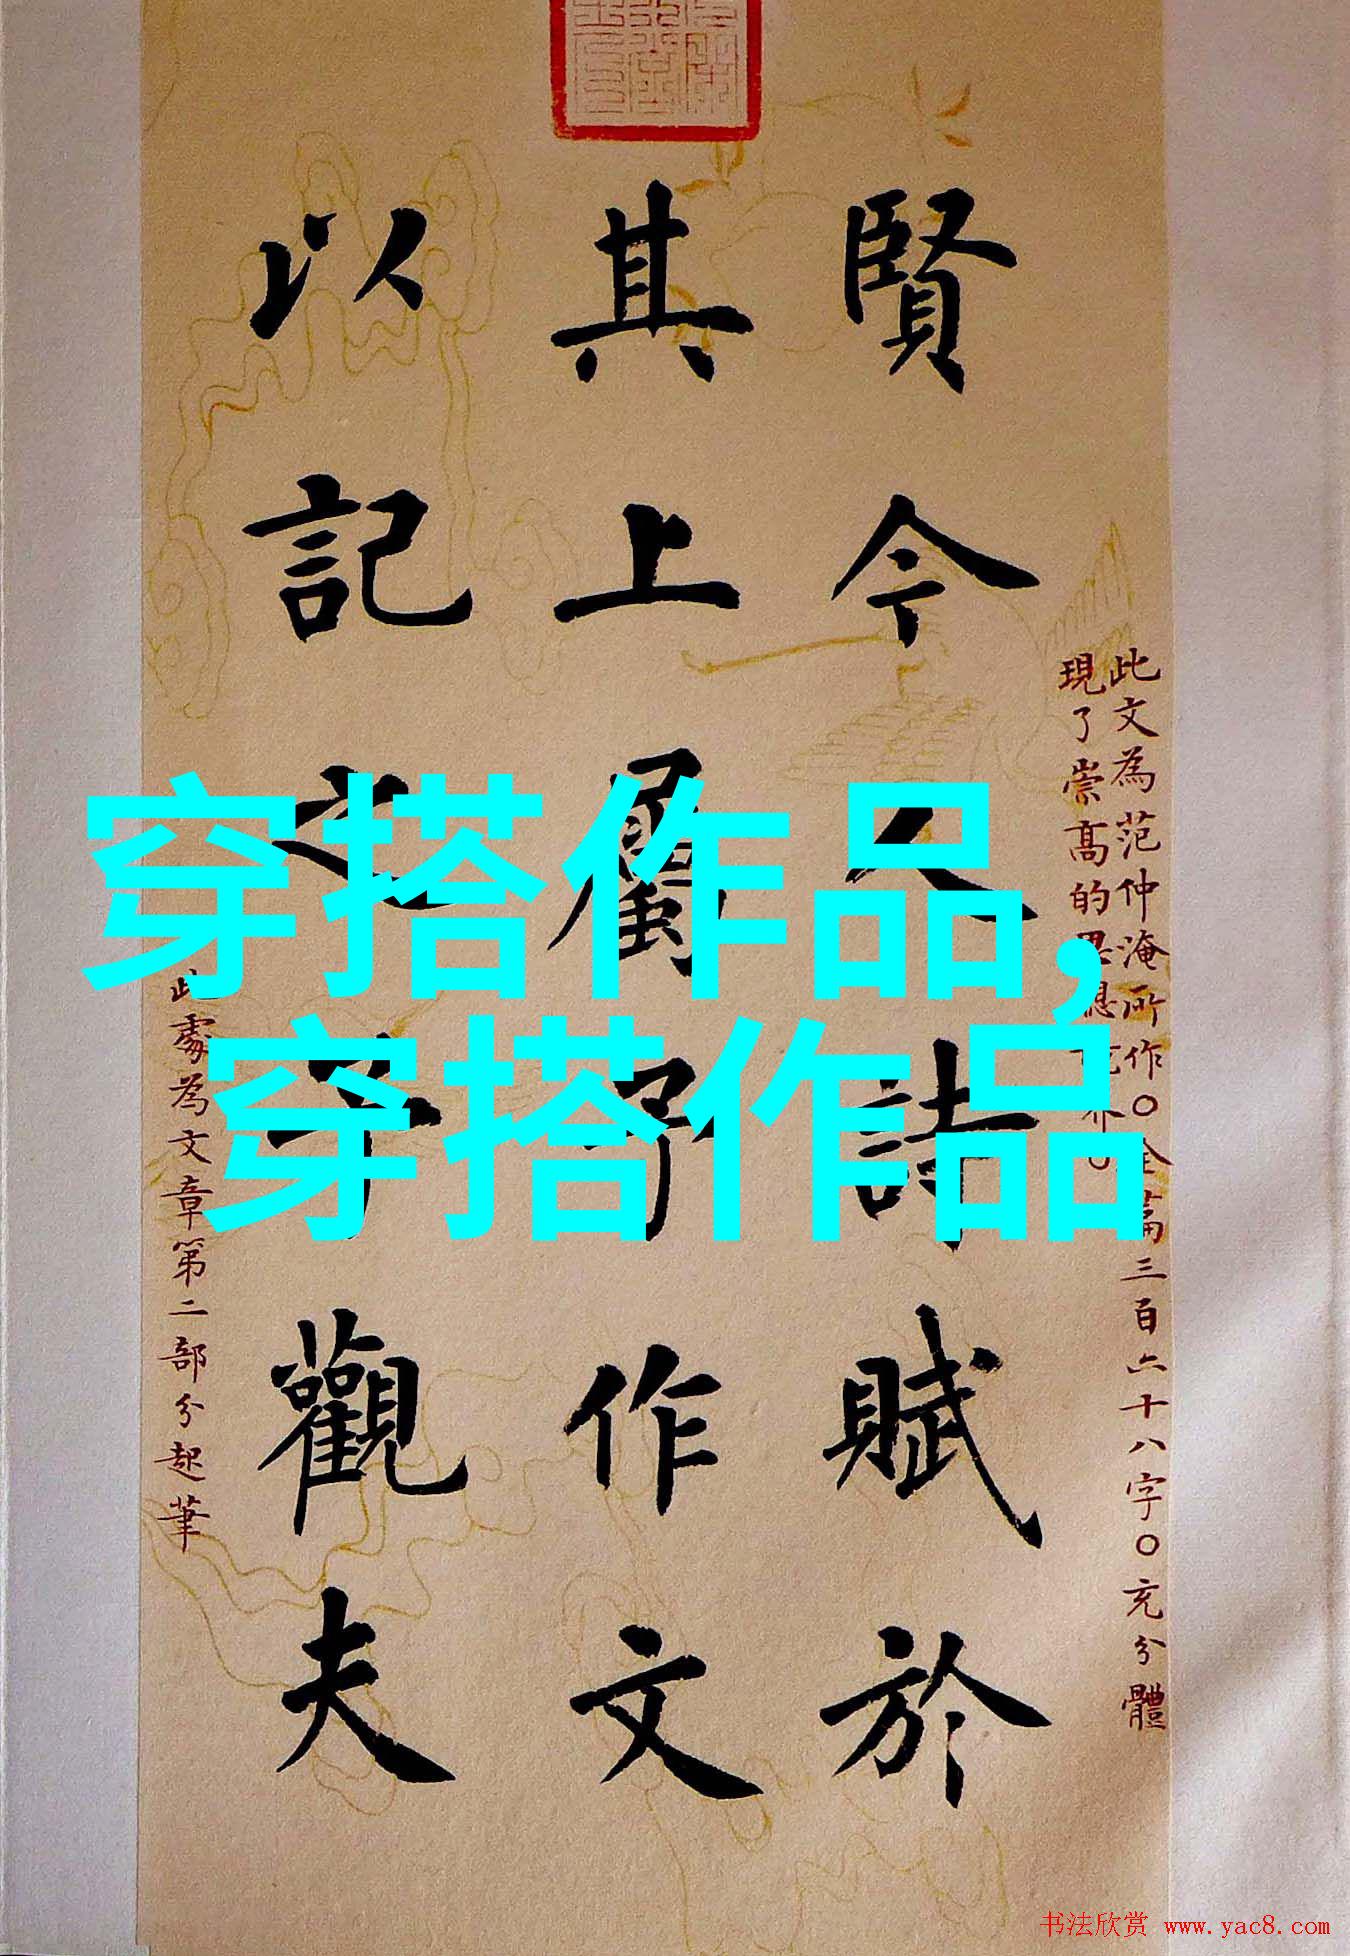 穿搭作品,
穿搭作品
賢今人詩賦於
其上屬予作文
以記之予觀夫
此文為范仲淹所作○全篇三百六十八字○充分體
現了崇高的思想
此處為文章第二部分起筆
书法欣赏 www.yac8.com